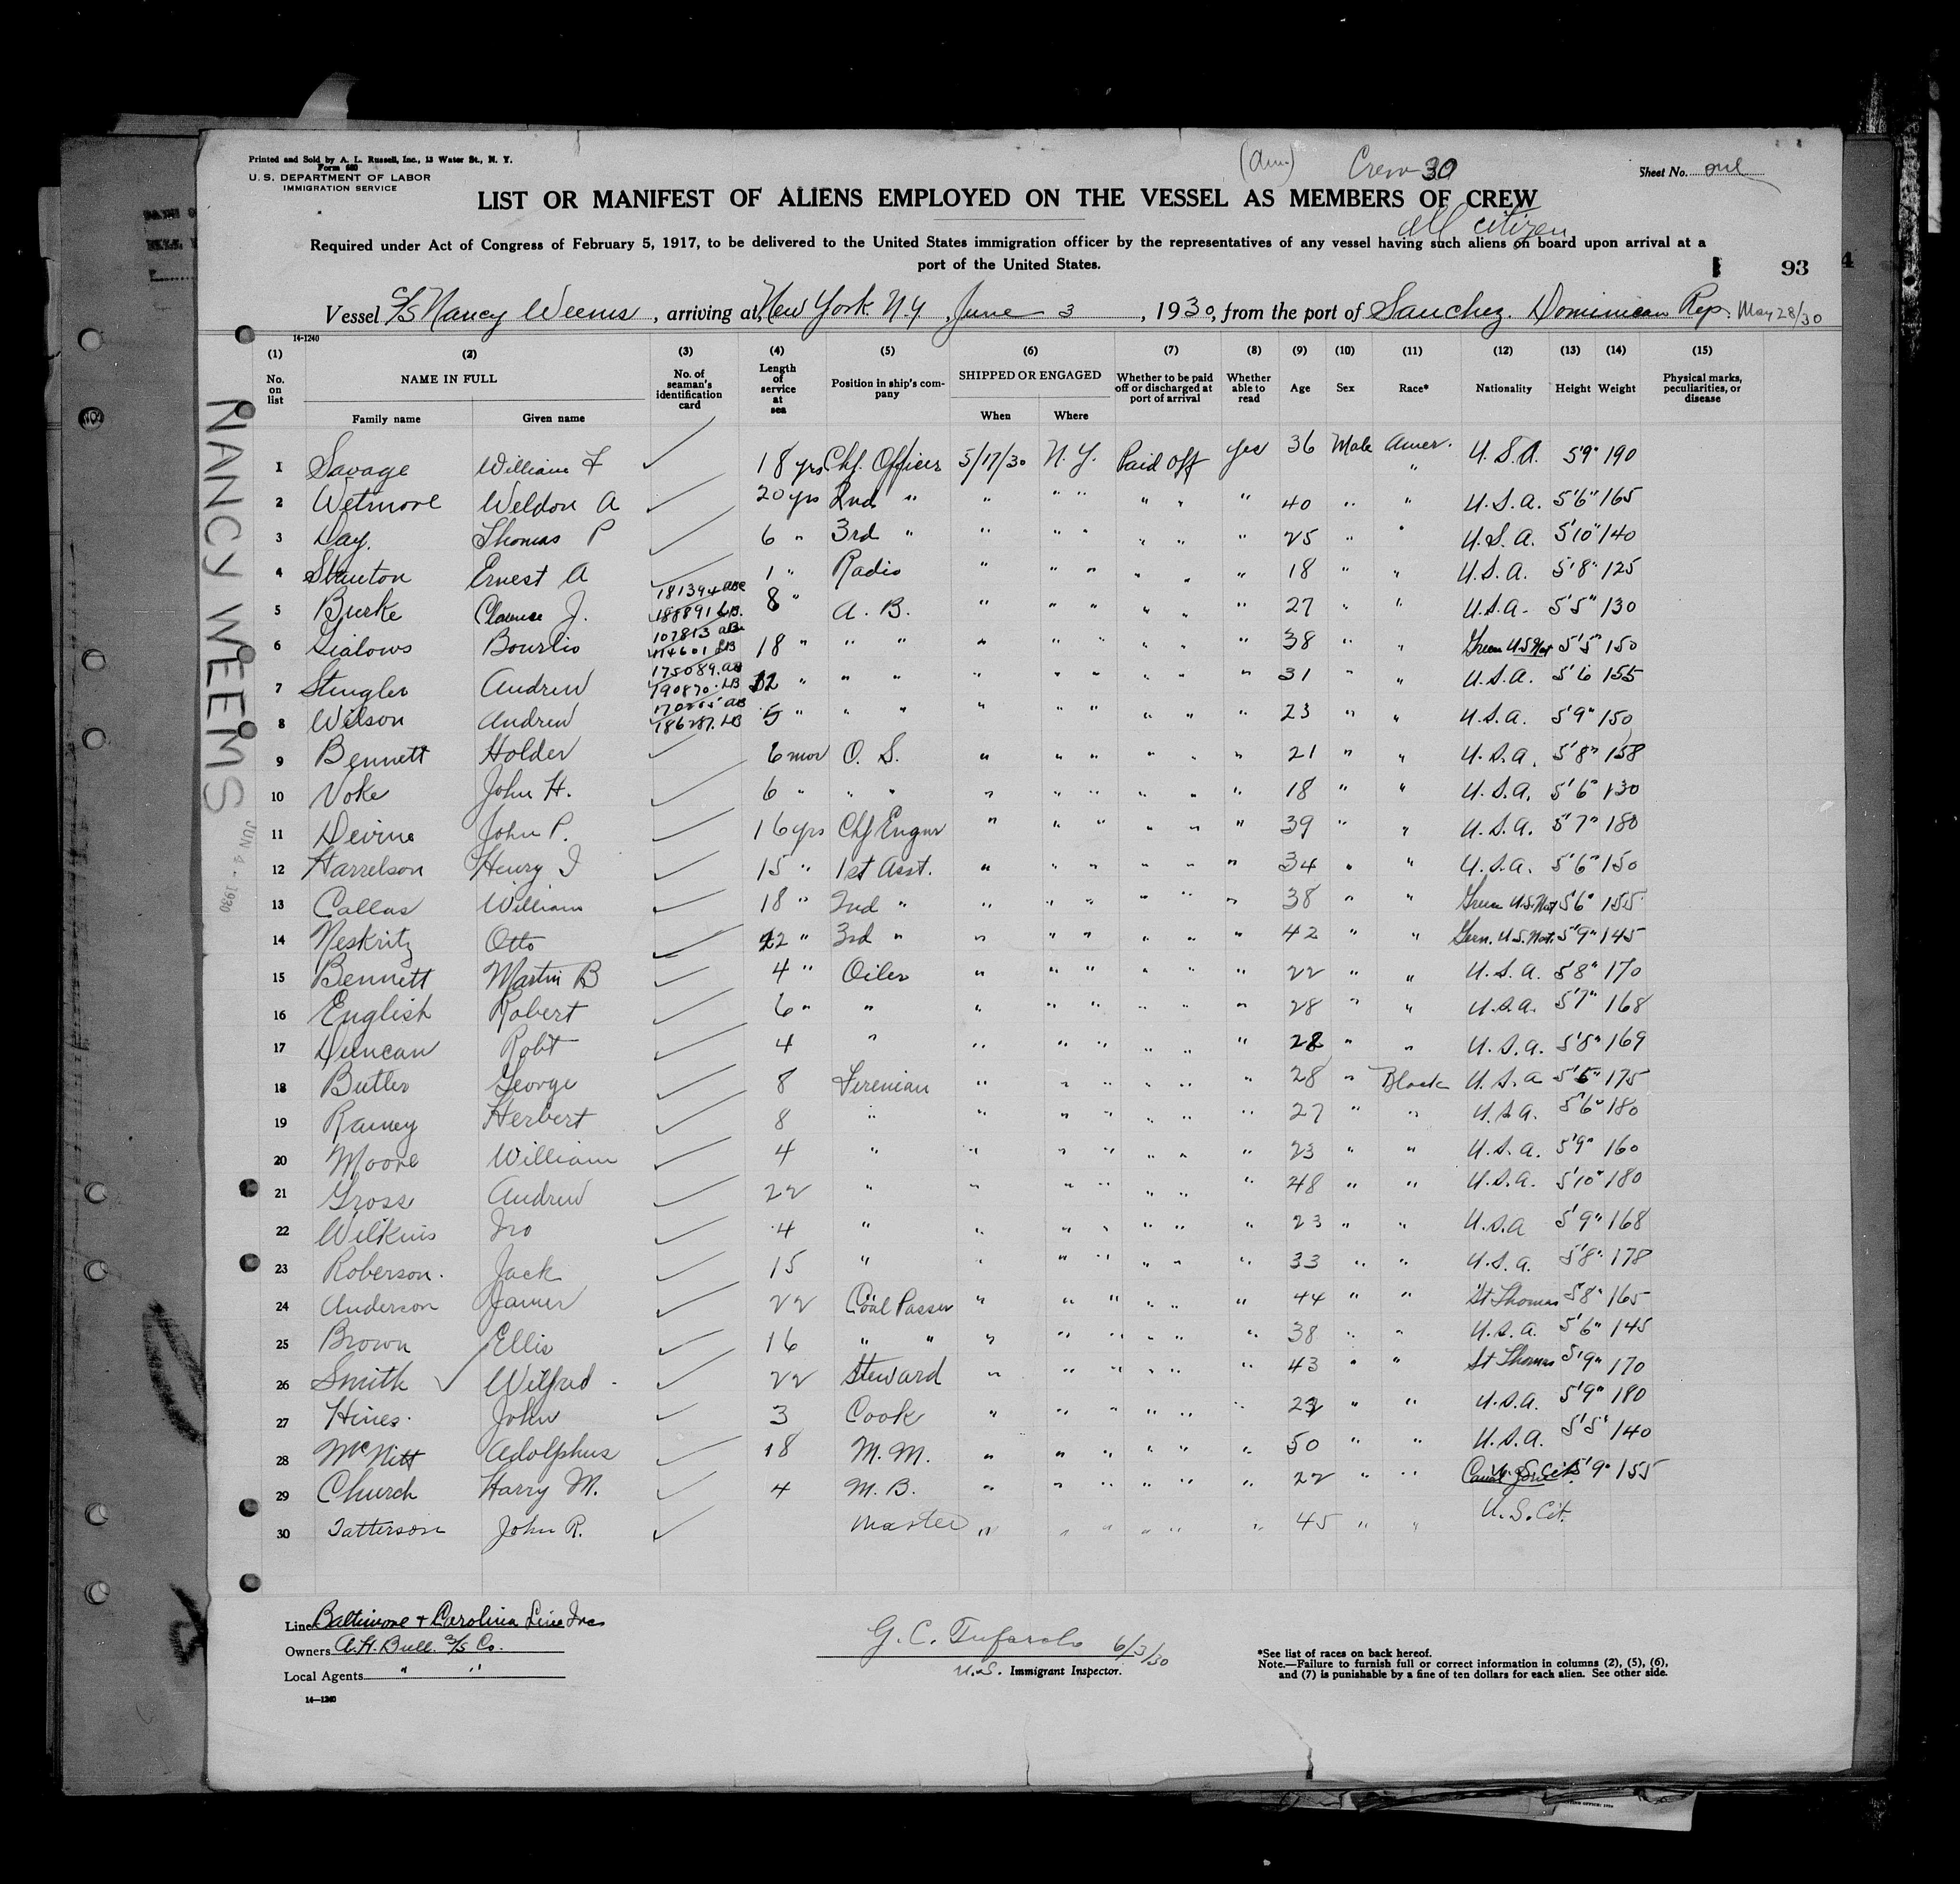 Printed and Sold by A. L. Russell, Inc., 13 Water St., N. Y.
Form 680
U. S. DEPARTMENT OF LABOR
IMMIGRATION SERVICE
(Am.) Crew 30
Sheet No. one
LIST OR MANIFEST OF ALIENS EMPLOYED ON THE VESSEL AS MEMBERS OF CREW
all citizen
Required under Act of Congress of February 5, 1917, to be delivered to the United States immigration officer by the representatives of any vessel having such aliens on board upon arrival at a
port of the United States.
93
Vessel S/S Nancy Weems, arriving at New York N.Y., June 3, 1930, from the port of Sanchez. Dominican Rep. May 28/30
14-1240
(1) (2) (3) (4) (5) (6) (7) (8) (9) (10) (11) (12) (13) (14) (15)
No. on list NAME IN FULL No. of seaman's identification card Length of service at sea Position in ship's company SHIPPED OR ENGAGED Whether to be paid off or discharged at port of arrival Whether able to read Age Sex Race* Nationality Height Weight Physical marks, peculiarities, or disease
Family name Given name When Where
1 Savage William F ✓ 18 yrs Chf. Officer 5/17/30 N.Y. Paid off yes 36 Male Amer. U.S.A. 5'9" 190
2 Wetmore Weldon A ✓ 20 yrs 2nd " " " " " " " 40 " " U.S.A. 5'6" 165
3 Day Thomas P ✓ 6 " 3rd " " " " " " " 25 " " U.S.A. 5'10" 140
4 Stanton Ernest A ✓ 1 " Radio " " " " " " 18 " " U.S.A. 5'8" 125
5 Burke Clarence J. 181394 AB 188891 LB. 8 " A.B. " " " " " " 27 " " U.S.A. 5'5" 130
6 Gialows Bourlis 107813 AB 114601 LB 18 " " " " " " " " " 38 " " Greece U.S. Nat 5'5" 150
7 Stingler Andrew 175089. AB 190870. LB 12 " " " " " " " " " 31 " " U.S.A. 5'6 155
8 Wilson Andrew 186287. LB 5 " " " " " " " " " 23 " " U.S.A. 5'9" 150
9 Bennett Holder ✓ 6 mos O.S. " " " " " " 21 " " U.S.A. 5'8" 158
10 Voke John H. ✓ 6 " " " " " " " " " 18 " " U.S.A. 5'6" 130
11 Devine John P. ✓ 16 yrs Chf Engnr " " " " " " 39 " " U.S.A. 5'7" 180
12 Harrelson Henry I ✓ 15 " 1st Asst. " " " " " " 34 " " U.S.A. 5'6" 150
13 Callas William ✓ 18 " 2nd " " " " " " " 38 " " Greece U.S. Nat 5'6" 155
14 Neskritz Otto ✓ 22 " 3rd " " " " " " " 42 " " Germ. U.S. Nat. 5'9" 145
15 Bennett Martin B ✓ 4 " Oiler " " " " " " 22 " " U.S.A. 5'8" 170
16 English Robert ✓ 6 " " " " " " " " 28 " " U.S.A. 5'7" 168
17 Duncan Robt ✓ 4 " " " " " " " 28 " " U.S.A. 5'8" 169
18 Butler George ✓ 8 Fireman " " " " " " 28 " Black U.S.A 5'5" 175
19 Ramey Herbert ✓ 8 " " " " " " " 27 " " U.S.A. 5'6" 180
20 Moore William ✓ 4 " " " " " " " 23 " " U.S.A. 5'9" 160
21 Gross Andrew ✓ 22 " " " " " " " 48 " " U.S.A. 5'10" 180
22 Wilkins Jno ✓ 4 " " " " " " " 23 " " U.S.A 5'9" 168
23 Roberson. Jack ✓ 15 " " " " " " " 33 " " U.S.A. 5'8" 178
24 Anderson James ✓ 22 Coal Passer " " " " " " 44 " " St Thomas 5'8" 165
25 Brown Ellis ✓ 16 " " " " " " " " 38 " " U.S.A. 5'6" 145
26 Smith ✓ Wilfred ✓ 22 Steward " " " " " " 43 " " St Thomas 5'9" 170
27 Hines. John ✓ 3 Cook " " " " " " 23 " " U.S.A. 5'9" 180
28 McNitt Adolphus ✓ 18 M.M. " " " " " " 50 " " U.S.A. 5'5" 140
29 Church Harry M. ✓ 4 M.B. " " " " " " 22 " " Canal Zone U.S. Cit. 5'9" 155
30 Tatterson John R. ✓ Master " " " " " " 45 " " U.S. Cit.
NANCY WEEMS
JUN 4 - 1930
Line Baltimore & Carolina Line Inc
Owners A.H. Bull S/S Co.
Local Agents " "
14—1240
G. C. Tufarolo 6/3/30
U.S. Immigrant Inspector.
*See list of races on back hereof.
Note.—Failure to furnish full or correct information in columns (2), (5), (6),
and (7) is punishable by a fine of ten dollars for each alien. See other side.